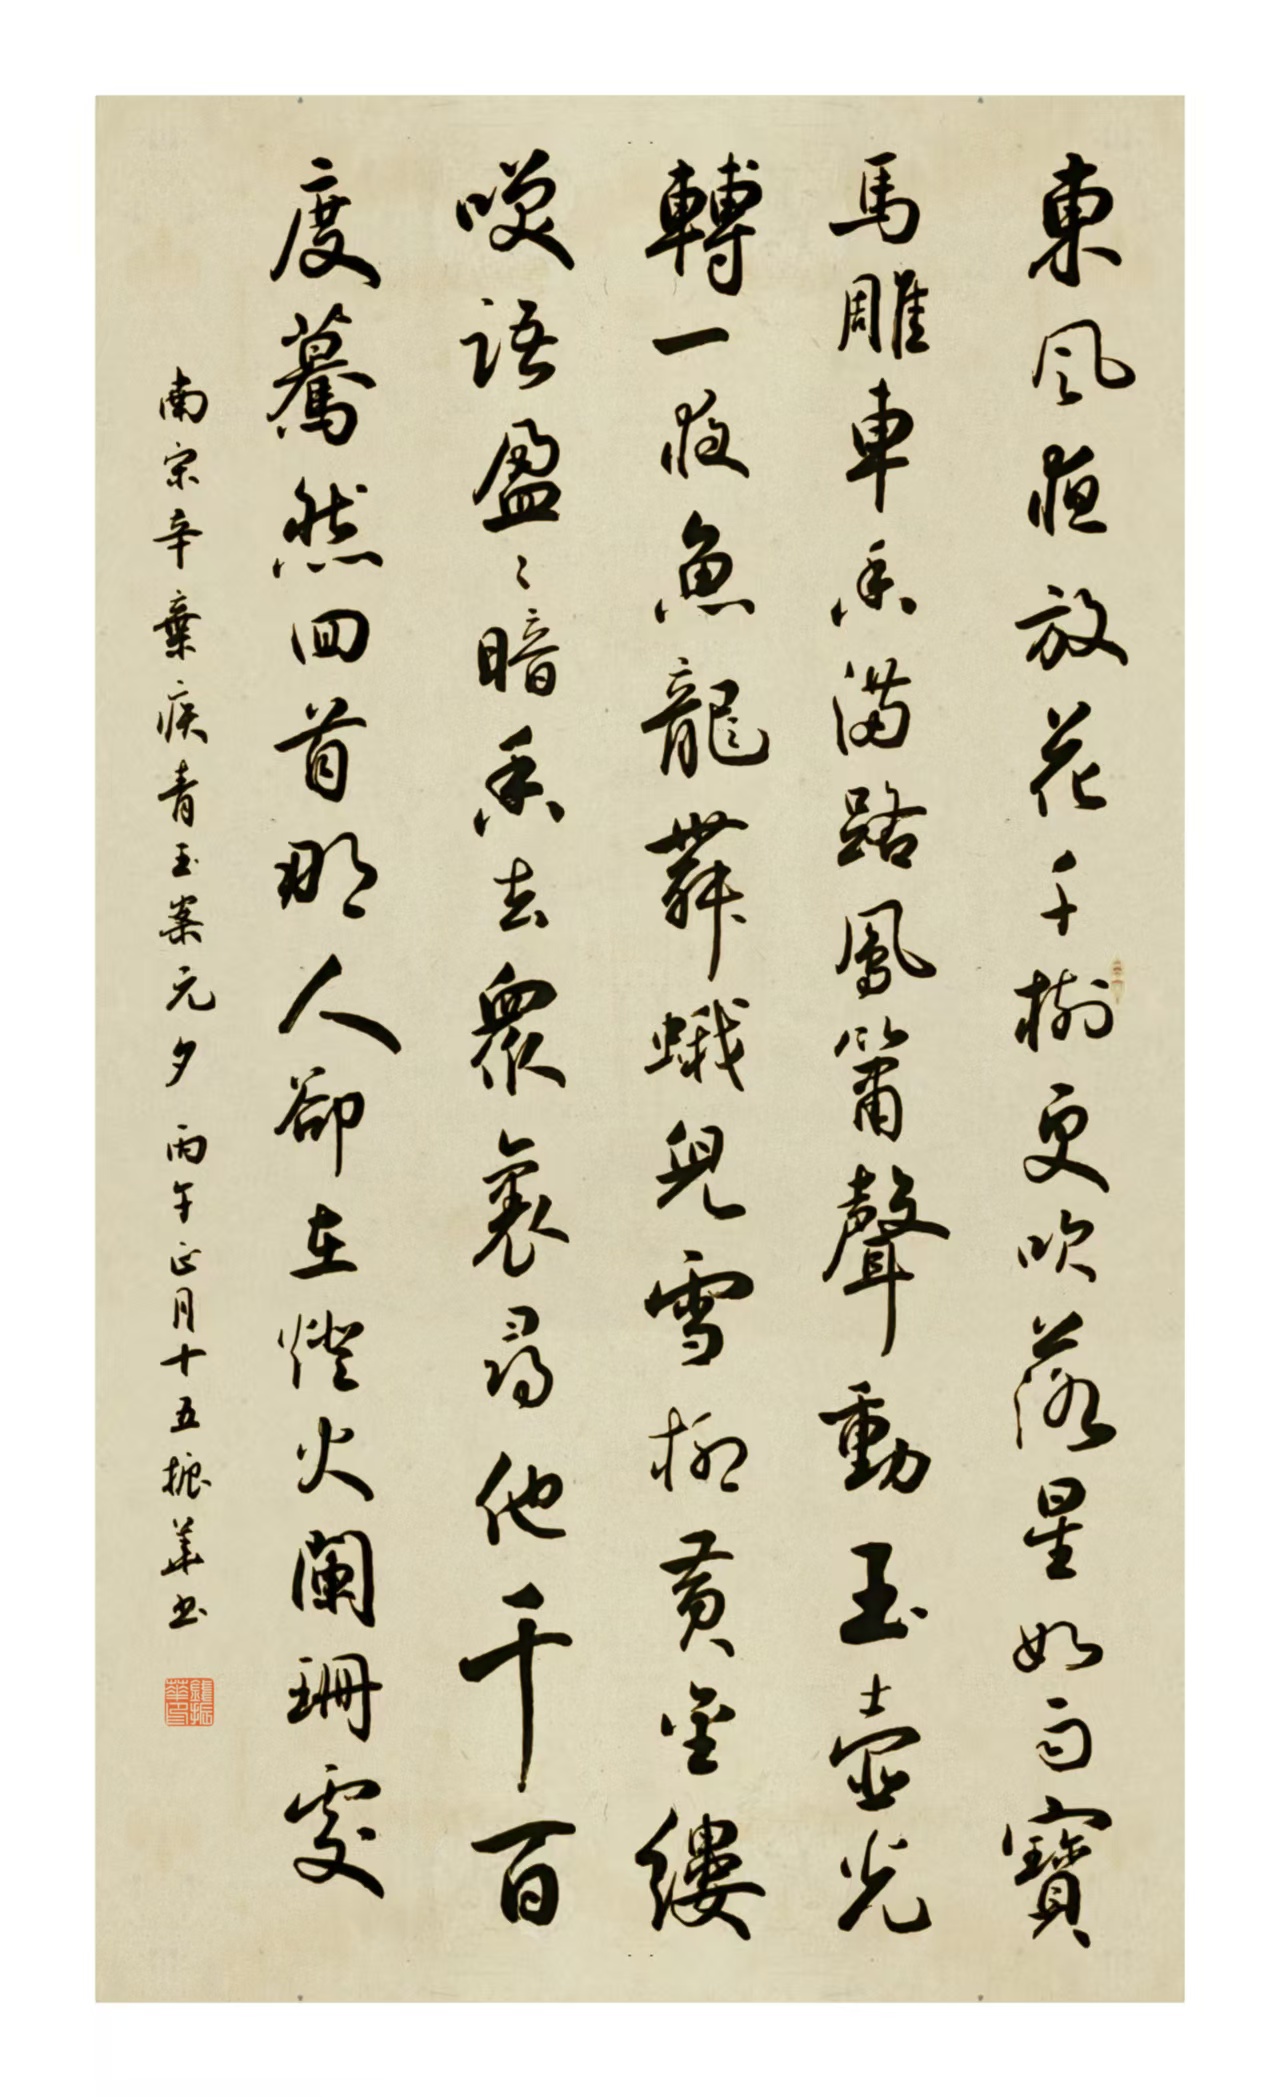 東風夜放花千樹更吹落星如雨寶
馬雕車香滿路鳳簫聲動玉壺光
轉一夜魚龍舞蛾兒雪柳黃金縷
笑語盈〻暗香去眾裏尋他千百
度驀然回首那人卻在燈火闌珊處
南宋辛棄疾青玉案元夕 丙午正月十五振華书